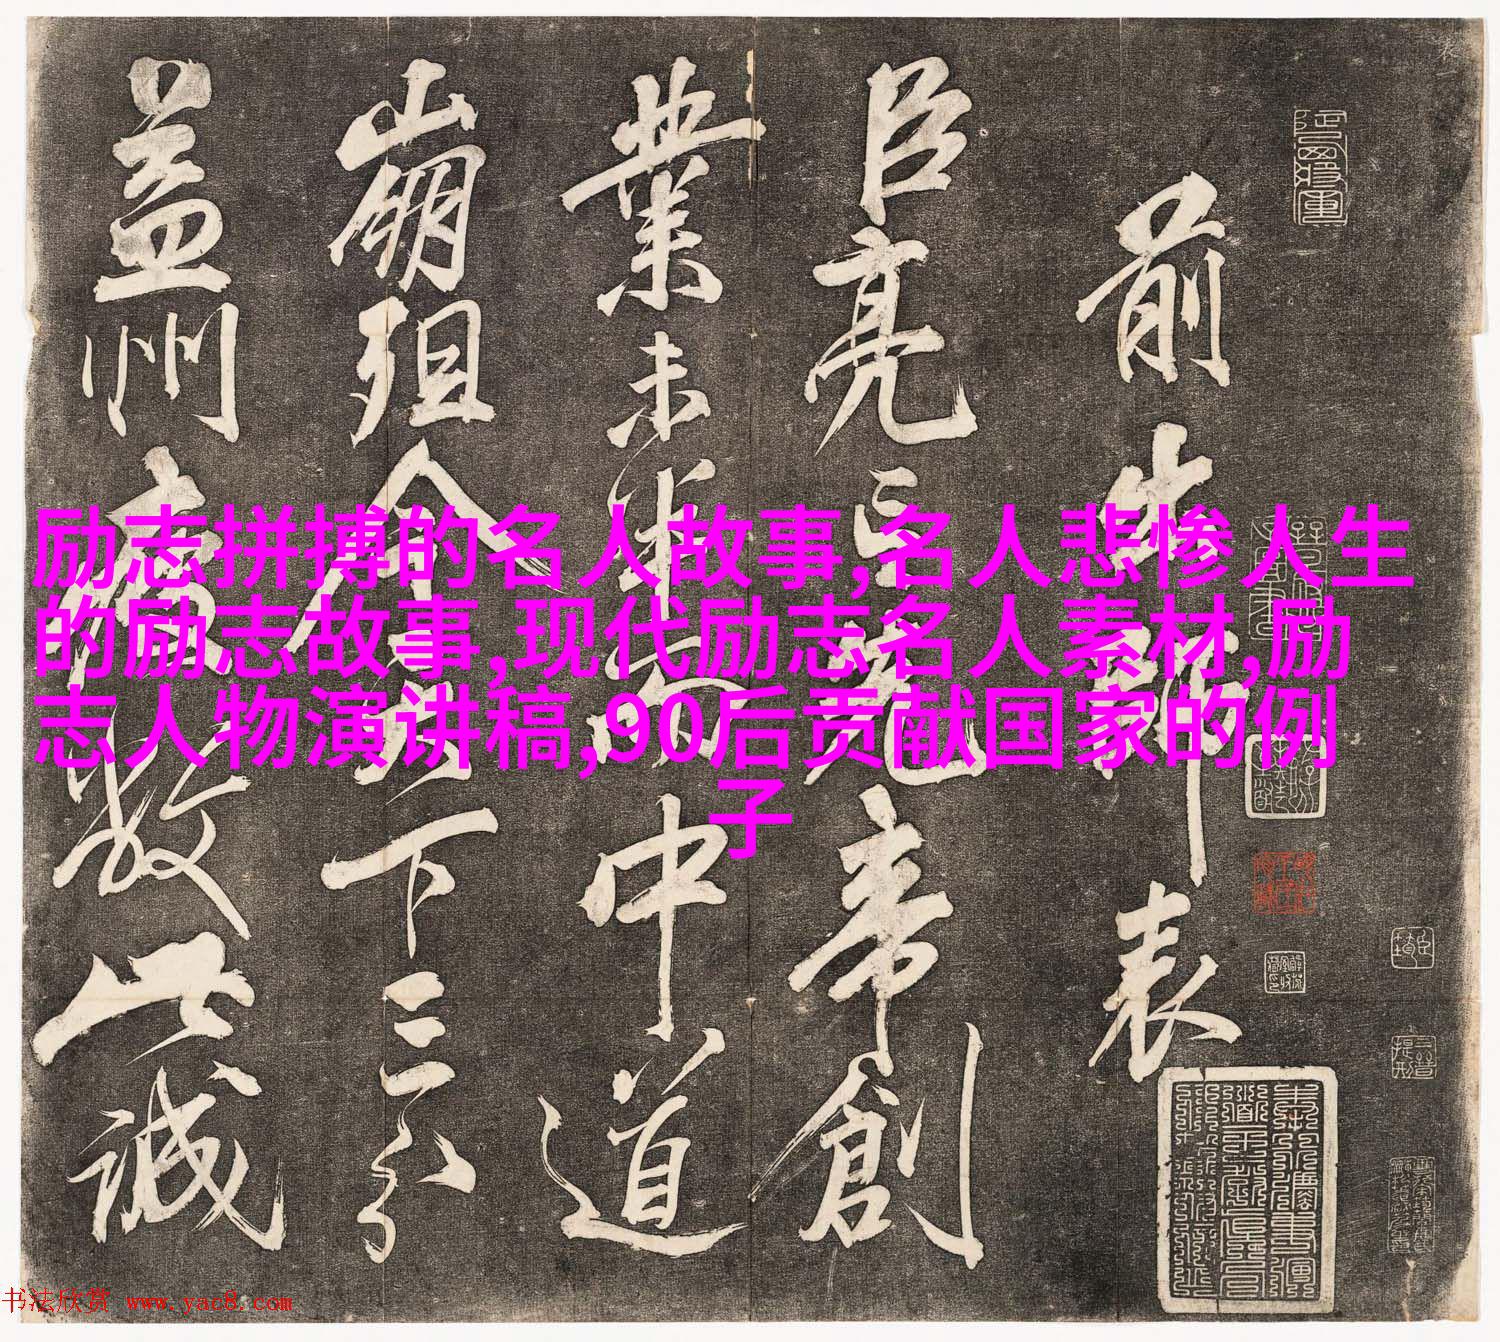 前出師表
臣亮言先帝創
業未半而中道
崩殂今天下三分
益州疲敝此誠
励志拼搏的名人故事,名人悲惨人生
的励志故事,现代励志名人素材,励
志人物演讲稿,90后贡献国家的例
子
书法欣赏 www.yac8.com